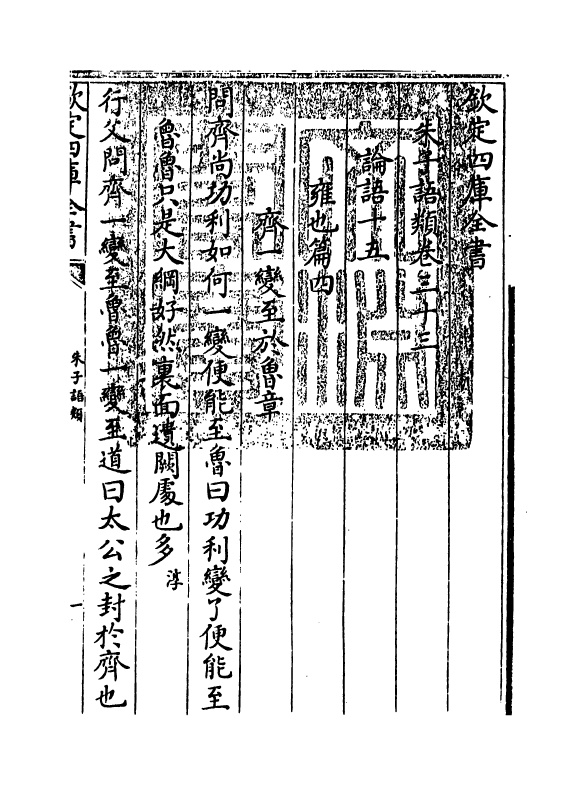 欽定四庫全書
朱子語類卷三十三
論語十五
雍也篇四
齊一變至於魯章
問齊尚功利如何一變便能至魯曰功利變了便能至
魯魯只是大綱好然裏面遺闕處也多淳
行父問齊一變至魯魯一變至道曰太公之封於齊也
欽定四庫全書
朱子語類
一